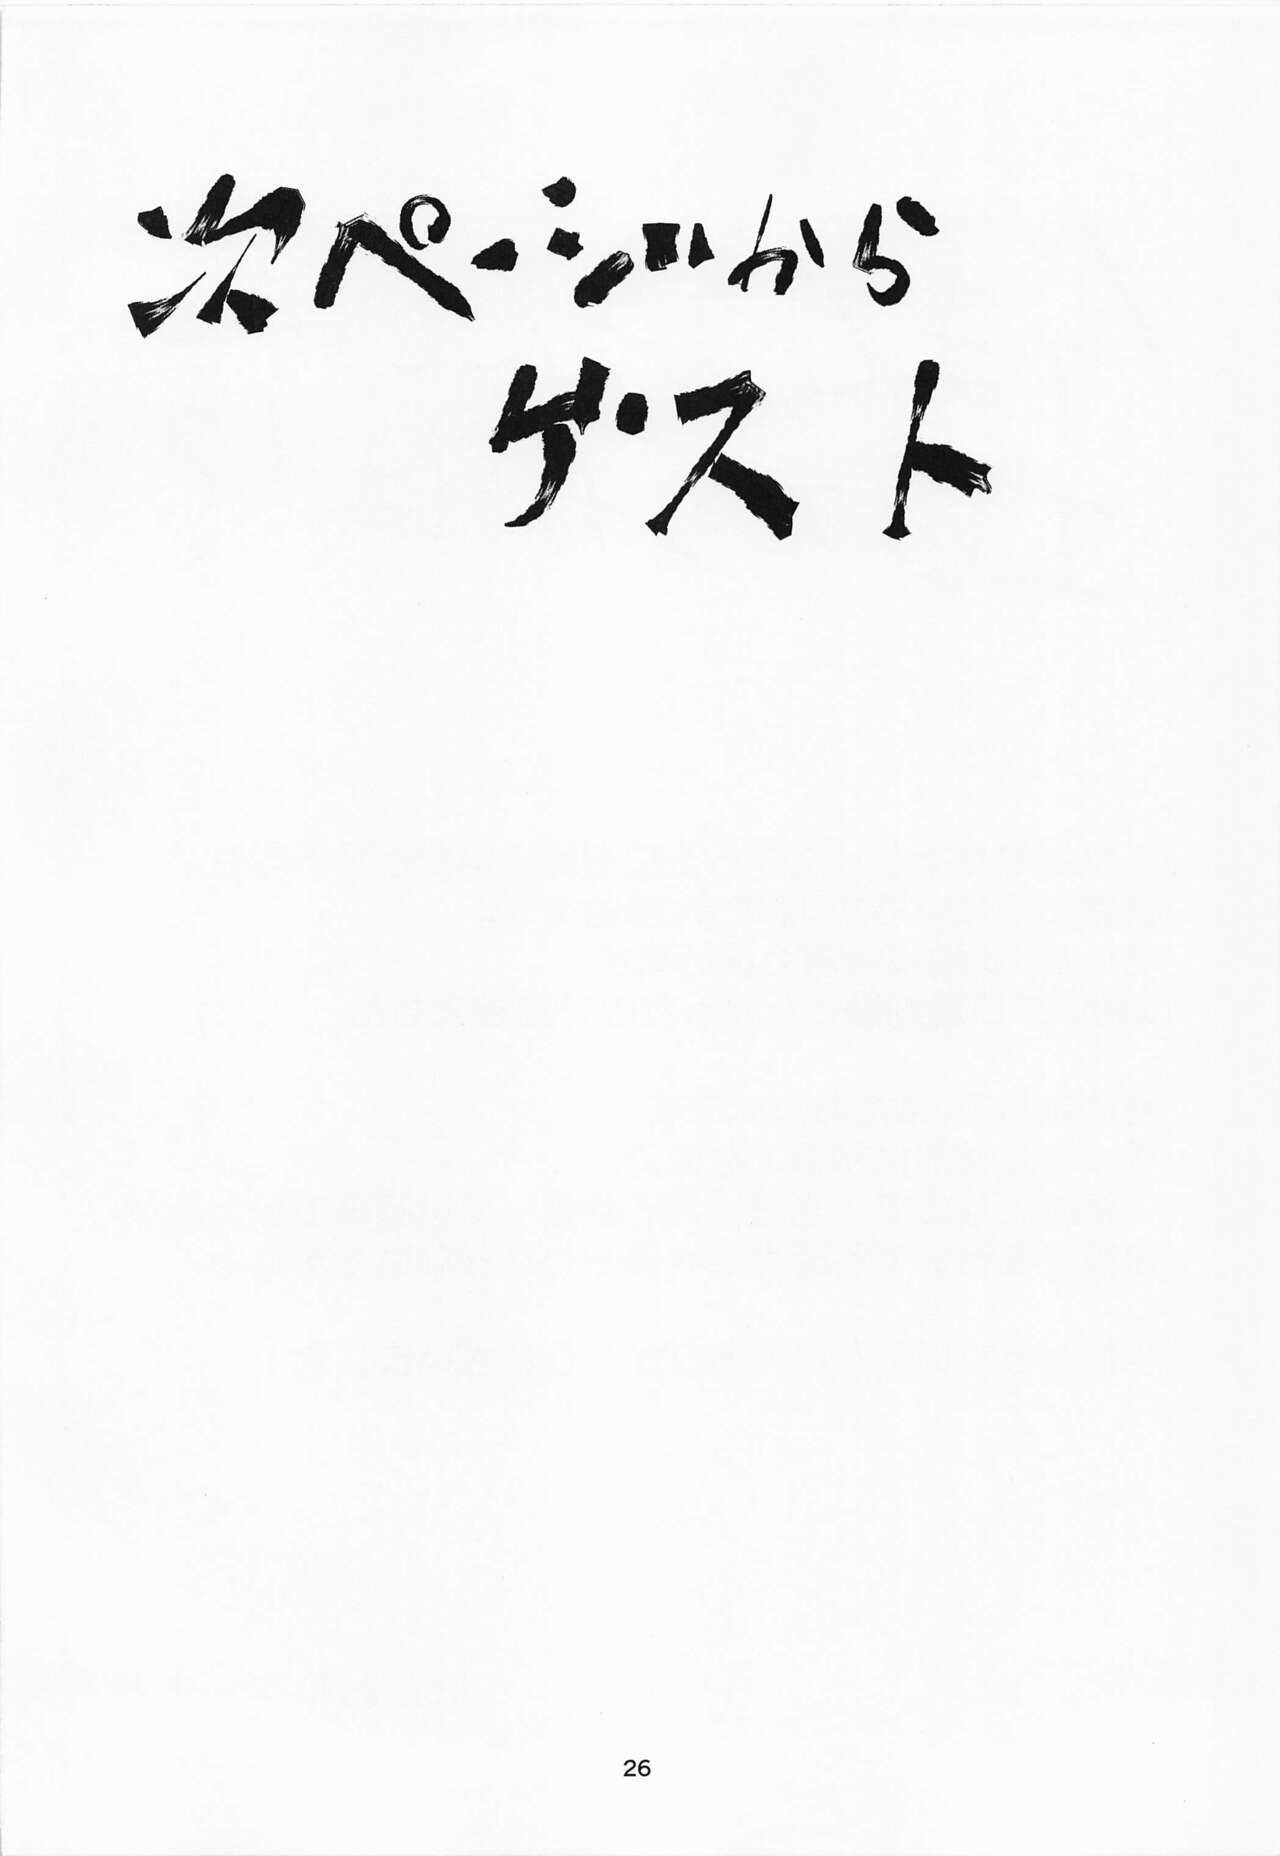 次ページから
ゲスト
26